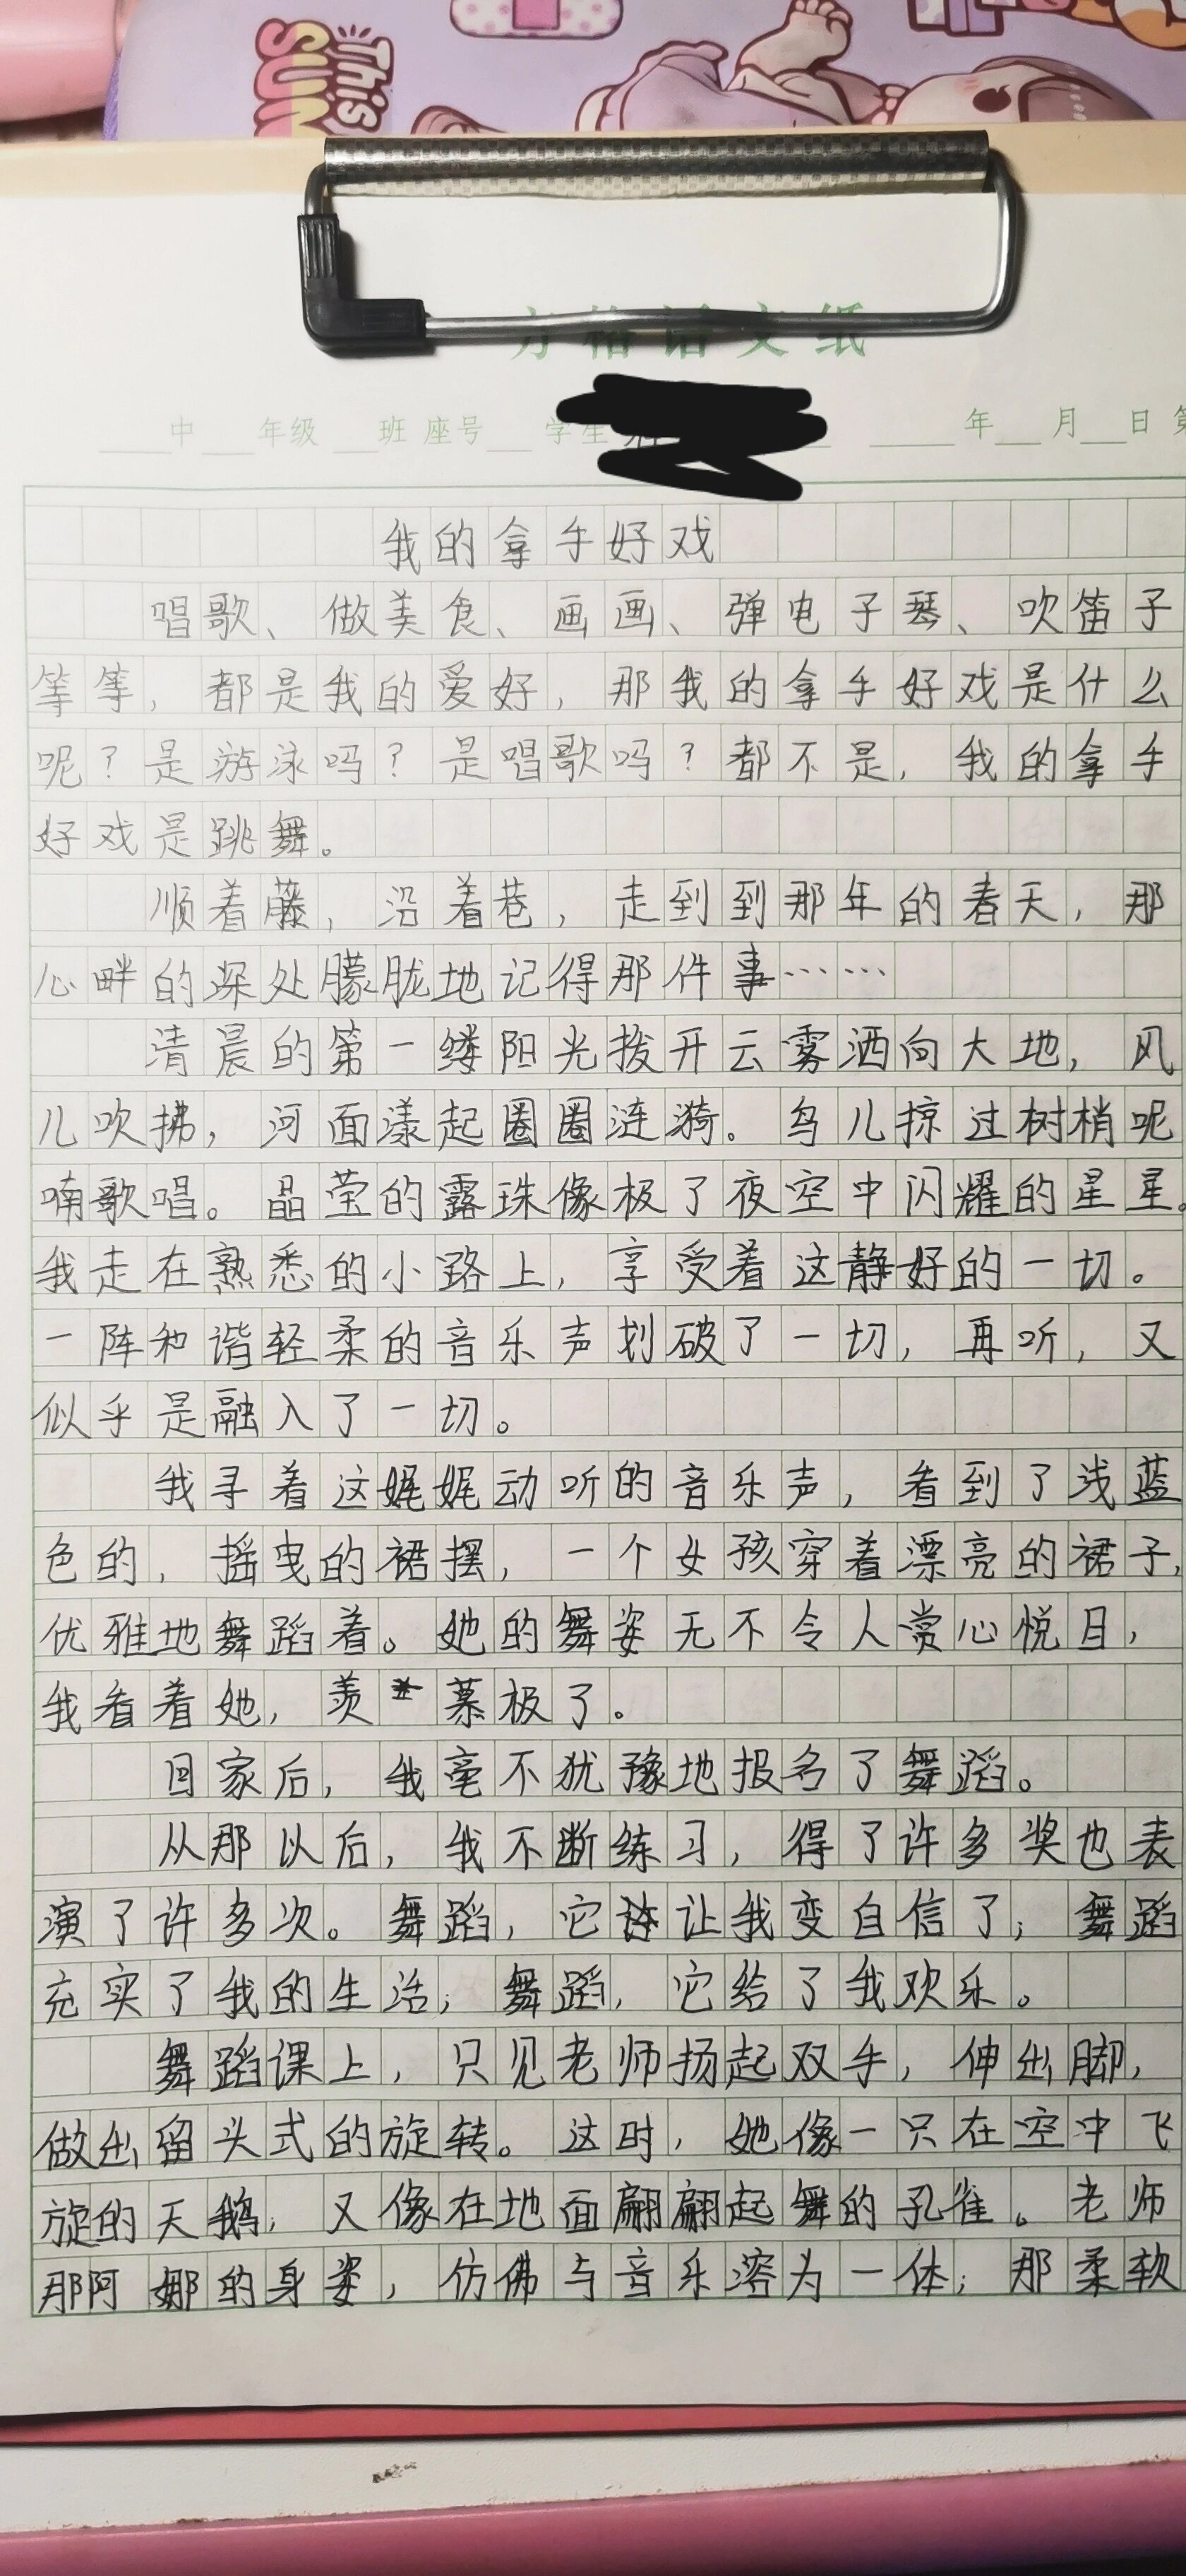 This
SUN
方格语文纸
中 年级 班 座号 学生 年 月 日 第
我的拿手好戏
唱歌、做美食、画画、弹电子琴、吹笛子
等等，都是我的爱好，那我的拿手好戏是什么
呢？是游泳吗？是唱歌吗？都不是，我的拿手
好戏是跳舞。
顺着藤，沿着巷，走到到那年的春天，那
心畔的深处朦胧地记得那件事……
清晨的第一缕阳光拨开云雾洒向大地，风
儿吹拂，河面漾起圈圈涟漪。鸟儿掠过树梢呢
喃歌唱。晶莹的露珠像极了夜空中闪耀的星星。
我走在熟悉的小路上，享受着这静好的一切。
一阵和谐轻柔的音乐声划破了一切，再听，又
似乎是融入了一切。
我寻着这娓娓动听的音乐声，看到了浅蓝
色的，摇曳的裙摆，一个女孩穿着漂亮的裙子，
优雅地舞蹈着。她的舞姿无不令人赏心悦目，
我看着她，羡慕极了。
回家后，我毫不犹豫地报名了舞蹈。
从那以后，我不断练习，得了许多奖也表
演了许多次。舞蹈，它让我变自信了；舞蹈
充实了我的生活；舞蹈，它给了我欢乐。
舞蹈课上，只见老师扬起双手，伸出脚，
做出留头式的旋转。这时，她像一只在空中飞
旋的天鹅，又像在地面翩翩起舞的孔雀。老师
那阿娜的身姿，仿佛与音乐溶为一体；那柔软